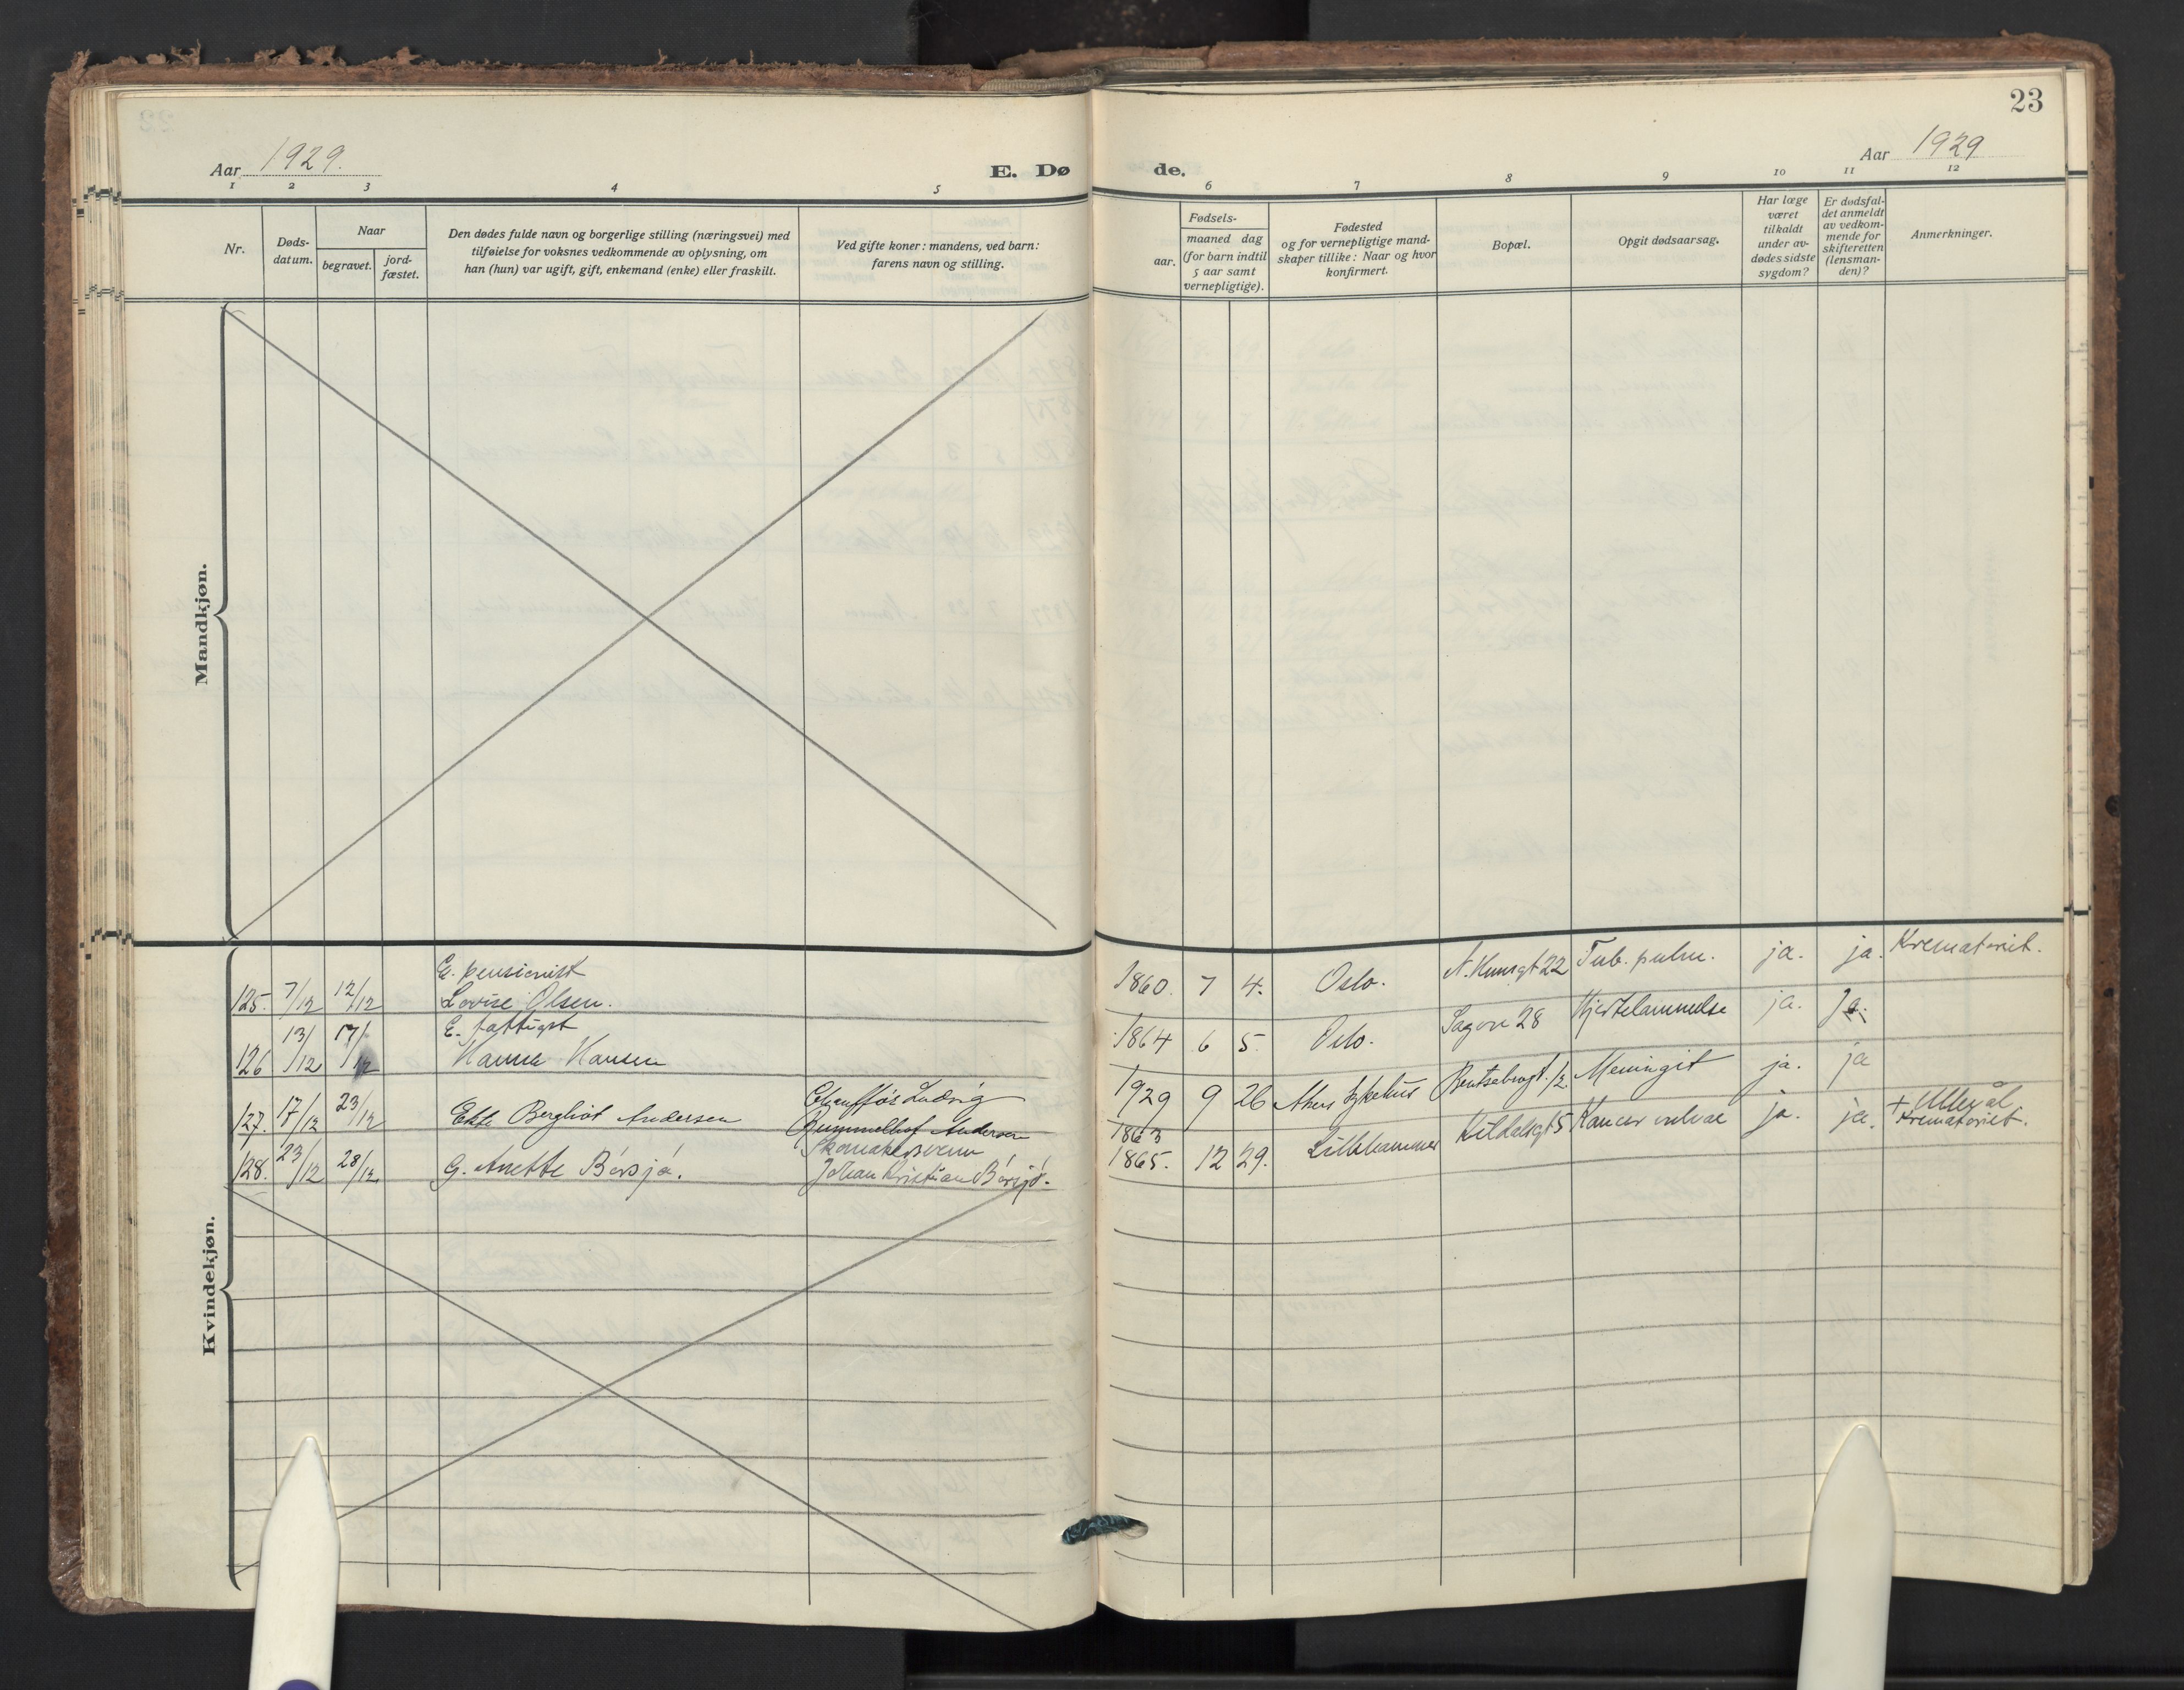 23
Aar 1929.
E. Dø
de.
Aar 1929
1 2 3 4 5 6 7 8 9 10 11 12
Nr.
Døds-
datum.
Naar
begravet.
jord-
fæstet.
Den dødes fulde navn og borgerlige stilling (næringsvei) med
tilføielse for voksnes vedkommende av oplysning, om
han (hun) var ugift, gift, enkemand (enke) eller fraskilt.
Ved gifte koner: mandens, ved barn:
farens navn og stilling.
aar.
Fødsels-
maaned dag
(for barn indtil
5 aar samt
vernepligtige).
Fødested
og for vernepligtige mand-
skaper tillike: Naar og hvor
konfirmert.
Bopæl.
Opgit dødsaarsag.
Har læge
været
tilkaldt
under av-
dødes sidste
sygdom?
Er dødsfal-
det anmeldt
av vedkom-
mende for
skifteretten
(lensman-
den)?
Anmerkninger.
Mandkjøn.
Kvindekjøn.
E. pensionist
125. 7/12 12/12 Lovise Olsen. 1860. 7 4. Oslo. 22 Tub. pulm. ja. ja. Krematoriet.
E. fattigst
126 13/12 17/12 Hanna Hansen 1864 6 5 Oslo. Sagvn 28 Hjertelammelse ja. Ja.
Chauffør Ludvig
127. 17/12 23/12 Bergliot Andersen Rummelhof Andersen 1929 9 26 Akers Sykehus Meningit ja. ja
Skomakersvenn
1863
+ Ullevål
128. 23/12 28/12 G. Anette Børsjø. Johan Kristian Børsjø. 1865. 12 29. Lillehammer Kildalsgt 5 Kancer vulvae ja. ja. Krematoriet.